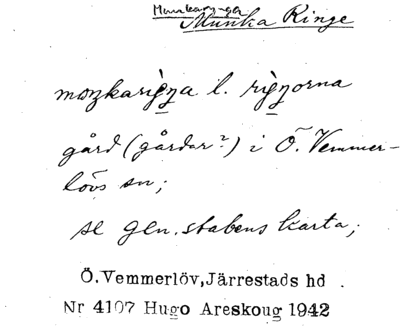 Munka Ringe
moŋkariŋa l. riŋorna
gård (gårdar?) i Ö. Vemmer-
lövs sn;
se gen. stabens karta;
Ö. Vemmerlöv, Järrestads hd.
Nr 4107 Hugo Areskoug 1942